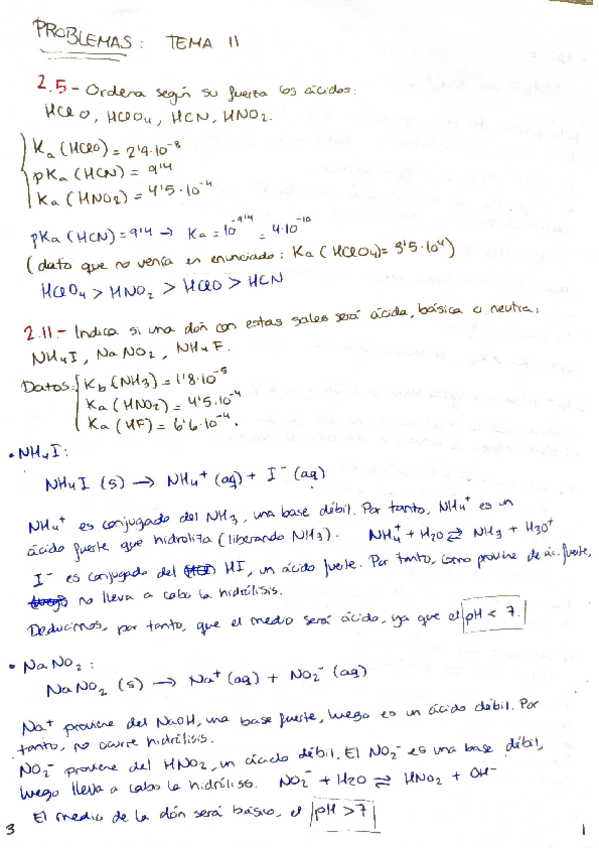 PROBLEMAS: TEMA 11
2.5- Ordena según su fuerza los ácidos:
HClO, HClO4, HCN, HNO2.
Ka (HClO) = 2'9·10⁻⁸
pKa (HCN) = 9'4
Ka (HNO2) = 4'5·10⁻⁴
pKa (HCN) = 9'4 → Ka = 10⁻⁹'⁴ = 4·10⁻¹⁰
(dato que no venía en enunciado: Ka (HClO4) = 3'5·10⁴)
HClO4 > HNO2 > HClO > HCN
2.11.- Indica si una dón con estas sales será ácida, básica o neutra:
NH4I, NaNO2, NH4F.
Datos: Kb (NH3) = 1'8·10⁻⁵
Ka (HNO2) = 4'5·10⁻⁴
Ka (HF) = 6'6·10⁻⁴.
• NH4I:
NH4I (s) → NH4⁺ (aq) + I⁻ (aq)
NH4⁺ es conjugado del NH3, una base débil. Por tanto, NH4⁺ es un
ácido fuerte que hidroliza (liberando NH3). NH4⁺ + H2O ⇄ NH3 + H3O⁺
I⁻ es conjugado del HI, un ácido fuerte. Por tanto, como proviene de ác. fuerte,
no lleva a cabo la hidrólisis.
Deducimos, por tanto, que el medio será ácido, ya que el pH < 7.
• NaNO2:
NaNO2 (s) → Na⁺ (aq) + NO2⁻ (aq)
Na⁺ proviene del NaOH, una base fuerte, luego es un ácido débil. Por
tanto, no ocurre hidrólisis.
NO2⁻ proviene del HNO2, un ácido débil. El NO2⁻ es una base débil,
luego lleva a cabo la hidróliso. NO2⁻ + H2O ⇄ HNO2 + OH⁻
El medio de la dón será básico, el pH > 7
3 1